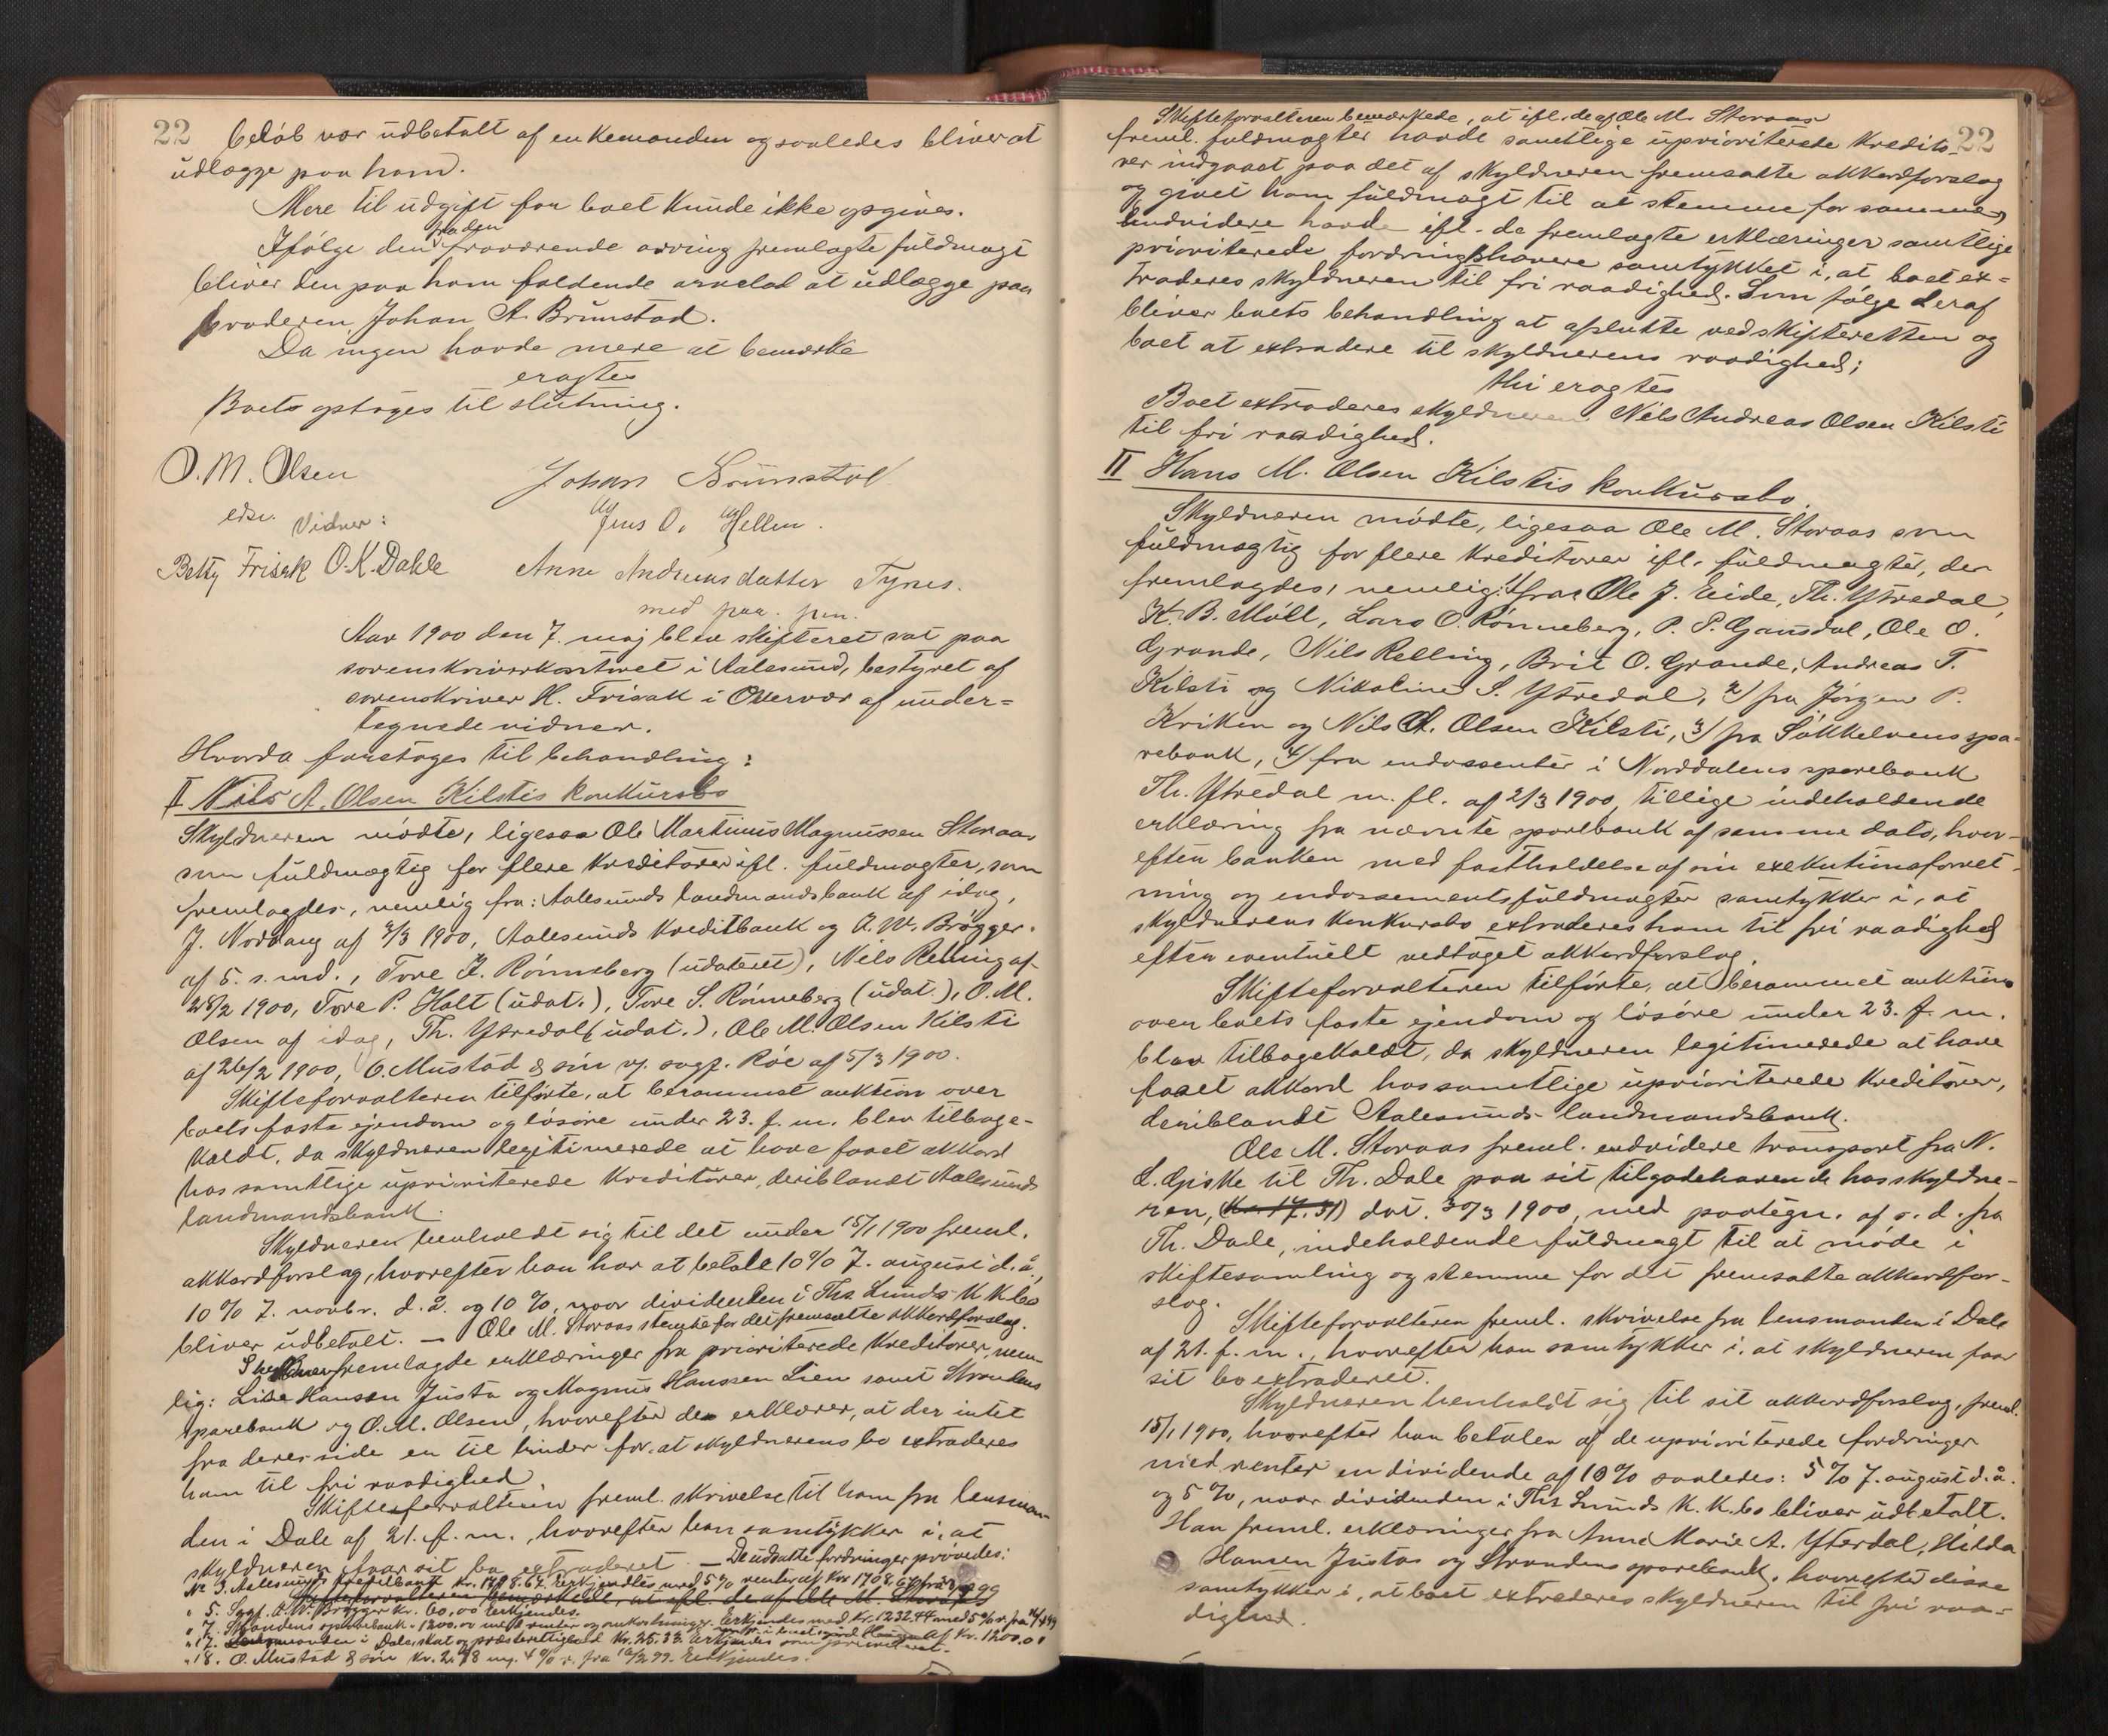 22
beløb var udbetalt af enkemanden og saaledes bliver at
udlægge paa ham.
Mere til udgift for boet kunde ikke opgives.
Ifølge den fra den fraværende arving fremlagte fuldmagt
bliver den paa ham faldende arvelod at udlægge paa
broderen Johan A. Brunstad.
Da ingen havde mere at bemærke
eragtes
Boets optages til slutning.
O. M. Olsen
Johan Brunstad
Jens O. Hellen.
Vidner:
Betty Frisak O. K. Dahle
Anne Andreasdatter Tynes.
med paa. pen.
Aar 1900 den 7. maj blev skifteret sat paa
sorenskriverkontoret i Aalesund, bestyret af
sorenskriver H. Frisak i Overvær af under-
tegnede vidner.
Hvorda foretoges til behandling:
I Nils A. Olsen Kilstis konkursbo
Skyldneren mødte, ligesaa Ole Martinus Magnussen Storaas
som fuldmægtig for flere kreditorer ifl. fuldmagter, som
fremlagdes, nemlig fra: Aalesunds landmandsbank af idag,
J. Norvang af 3/3 1900, Aalesunds Kreditbank og A. W. Brøgger
af 5. s. md., Tore K. Rønneberg (udateret), Nils Relling af
28/2 1900, Tore P. Holt (udat.), Tore S. Rønneberg (udat.), O. M.
Olsen af idag, Th. Ytredal (udat.), Ole M. Olsen Kilsti
af 26/2 1900, O. Mustad & søn v. sagf. Röe af 5/3 1900.
Skifteforvalteren tilførte, at berammet auktion over
boets faste ejendom og løsøre under 23. f. m. blev tilbage-
kaldt, da skyldneren legitimerede at have faaet akkord
hos samtlige uprioriterede kreditorer, deriblandt Aalesunds
landmandsbank.
Skyldneren henholdt sig til det under 15/1 1900 freml.
akkordforslag, hvorefter han har at betale 10% 7. august d. å.,
10% 7. novbr. d. å. og 10%, naar dividenden i Ths Lunds K K bo
bliver udbetalt. — Ole M. Storaas stemte for det fremsatte akkordforslag.
Skyldneren fremlagde erklæringer fra prioriterede kreditorer, nem-
lig: Lise Hansen Justa og Magnus Hanssen Lien samt Strandens
sparebank og O. M. Olsen, hvorefter de erklærer, at der intet
fra deres side er til hinder for, at skyldnerens bo extraderes
ham til fri raadighed
Skifteforvalteren freml. skrivelse til ham fra lensman-
den i Dale af 21. f. m., hvorefter han samtykker i, at
skyldneren faar sit bo extraderet. — De udsatte fordringer prøvedes:
No 3. Aalesunds kreditbank kr. 1718.67. Erkjendtes med 5% renter af kr. 1708.67 fra
Skifteforvalteren bemærkede, at ifl. de af Ole M. Storaas
" 5. Sagf. A. W. Brøgger kr. 60,00 Erkjendes.
" 7. Strandens sparebank " 1200.00 med renter og omkostninger. Erkjendes med kr. 1232.44 med 5% r. fra af kr. 1200.00
" 17. Lensmanden i Dale, skat og præsterettighed kr. 25.33. Erkjendes som prioriteret.
" 18. O. Mustad & søn kr. m. 4% r. fra 99. Erkjendes.
22
Skifteforvalteren bemærkede, at ifl. de af Ole M. Storaas
freml. fuldmagter havde samtlige uprioriterede kredito-
rer indgaaet paa det af skyldneren fremsatte akkordforslag
og givet ham fuldmagt til at stemme for samme,
endvidere havde ifl. de fremlagte erklæringer samtlige
prioriterede fordringshavere samtykket i, at boet ex-
traderes skyldneren til fri raadighed. Som følge deraf
bliver boets behandling at afslutte ved skifteretten og
boet at extradere til skyldnerens raadighed;
thi eragtes
Boet extraderes skyldneren Nils Andreas Olsen Kilsti
til fri raadighed.
II Hans M. Olsen Kilstis konkursbo.
Skyldneren mødte, ligesaa Ole M. Storaas som
fuldmægtig for flere kreditorer ifl. fuldmagter, der
fremlagdes, nemlig: 1) fra Ole J. Eide, Th. Ytredal,
K. B. Møll, Lars O. Rønneberg, P. P. Gamsdal, Ole O.
Grande, Nils Relling, Brit O. Grande, Andreas T.
Kilsti og Nikoline S. Ytredal, 2) fra Jørgen P.
Kriken og Nils A. Olsen Kilsti, 3) fra Søkkelvens spa-
rebank, 4) fra endossenter i Norddalens sparebank
Th. Ytredal m. fl. af 2/3 1900, tillige indeholdende
erklæring fra nævnte sparebank af samme dato, hvor-
efter banken med fastholdelse af sin exekutionsforret-
ning og endossementsfuldmagter samtykker i, at
skyldnerens konkursbo extraderes ham til fri raadighed
efter eventuelt vedtaget akkordforslag.
Skifteforvalteren tilførte, at berammet auktion
over boets faste ejendom og løsøre under 23. f. m.
blev tilbagekaldt, da skyldneren legitimerede at have
faaet akkord hos samtlige uprioriterede kreditorer,
deriblandt Aalesunds landmandsbank.
Ole M. Storaas freml. endvidere transport fra N.
L. Giske til Th. Dale paa sit tilgodehavende hos skyldne-
ren, (kr. 17.51) dat. 30/3 1900, med paategn. af s. d. fra
Th. Dale, indeholdende fuldmagt til at møde i
skiftesamling og stemme for det fremsatte akkordfor-
slag.
Skifteforvalteren freml. skrivelse fra lensmanden i Dale
af 21. f. m., hvorefter han samtykker i, at skyldneren faar
sit bo extraderet.
Skyldneren henholdt sig til sit akkordforslag, freml.
15/1 1900, hvorefter han betaler af de uprioriterede fordringer
med renter en dividende af 10% saaledes: 5% 7. august d. å.
og 5%, naar dividenden i Ths Lunds K. K. bo bliver udbetalt.
Han freml. erklæringer fra Anne Marie A. Yterdal, Hilda
Hansen Justas og Strandens sparebank, hvorefter disse
samtykker i, at boet extraderes skyldneren til fri raa-
dighed.